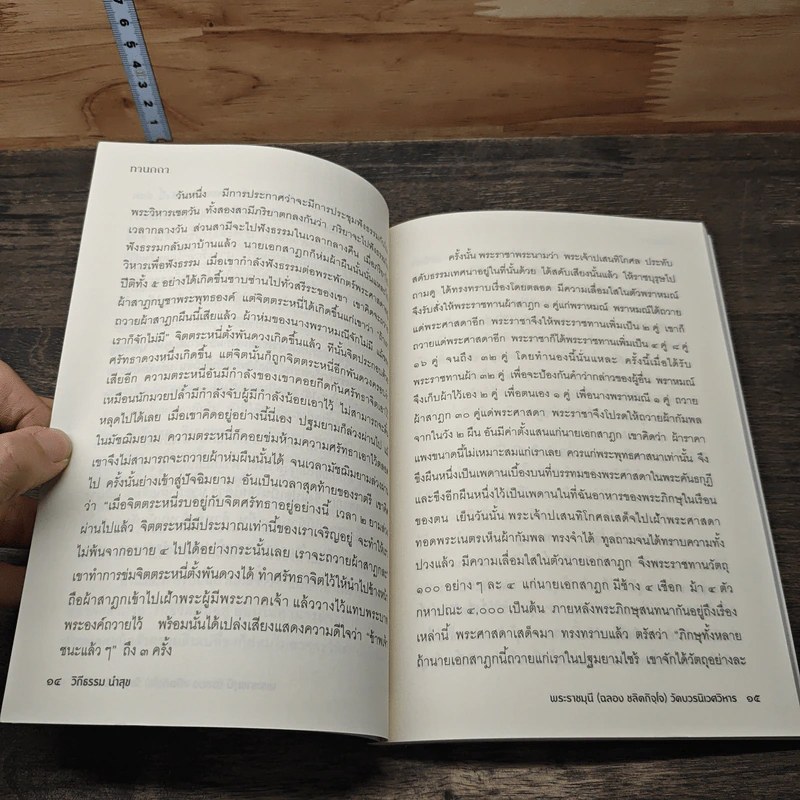 7 6 5 4 3 2 1
ทานกถา
วันหนึ่ง มีการประกาศว่าจะมีการประชุมฟังธรรม
พระวิหารเชตวัน ทั้งสองสามีภริยาตกลงกันว่า ภริยาจะไปฟังธรรม
เวลากลางวัน ส่วนสามีจะไปฟังธรรมในเวลากลางคืน
ฟังธรรมกลับมาบ้านแล้ว นายเอกสาฎกก็ห่มผ้าผืนนั้น
วิหารเพื่อฟังธรรม เมื่อเขากำลังฟังธรรมต่อพระพักตร์พระศาสดา
ปีติทั้ง ๕ อย่างได้เกิดขึ้นซาบซ่านไปทั่วสรีระของเขา
ผ้าสาฎกบูชาพระพุทธองค์ แต่จิตตระหนี่ได้เกิดขึ้นแก่เขาว่า
ถวายผ้าสาฎกผืนนี้เสียแล้ว ผ้าห่มของนางพราหมณีจักไม่มี
เราก็จักไม่มี" จิตตระหนี่ตั้งพันดวงเกิดขึ้นแล้ว ทีนั้นจิตประกอบด้วย
ศรัทธาดวงหนึ่งเกิดขึ้น แต่จิตนั้นก็ถูกจิตตระหนี่อีกพันดวง
เสียอีก ความตระหนี่อันมีกำลังของเขาคอยกีดกันศรัทธาจิต
เหมือนนักมวยปล้ำมีกำลังจับผู้มีกำลังน้อยเอาไว้ ไม่สามารถ
หลุดไปได้เลย เมื่อเขาคิดอยู่อย่างนี้นี่เอง ปฐมยามก็ล่วงผ่านไป
ในมัชฌิมยาม ความตระหนี่ก็คอยข่มห้ามความศรัทธาเอาไว้
เขาจึงไม่สามารถจะถวายผ้าห่มผืนนั้นได้ จนเวลามัชฌิมยามล่วง
ไป ครั้งนั้นย่างเข้าสู่ปัจฉิมยาม อันเป็นเวลาสุดท้ายของราตรี
ว่า "เมื่อจิตตระหนี่รบอยู่กับจิตศรัทธาอยู่อย่างนี้ เวลา ๒ ยาม
ผ่านไปแล้ว จิตตระหนี่มีประมาณเท่านี้ของเราเจริญอยู่ จะทำให้
ไม่พ้นจากอบาย ๔ ไปได้อย่างกระนั้นเลย เราจะถวายผ้าสาฎก
เขาทำการข่มจิตตระหนี่ตั้งพันดวงได้ ทำศรัทธาจิตไว้ให้นำไปข้างหน้า
ถือผ้าสาฎกเข้าไปเฝ้าพระผู้มีพระภาคเจ้า แล้ววางไว้แทบพระบาท
พระองค์ถวายไว้ พร้อมนั้นได้เปล่งเสียงแสดงความดีใจว่า "ข้าพเจ้า
ชนะแล้ว ๆ" ถึง ๓ ครั้ง
๑๔ วิถีธรรม นำสุข
ครั้งนั้น พระราชาพระนามว่า พระเจ้าปเสนทิโกศล ประทับ
สดับธรรมเทศนาอยู่ในที่นั้นด้วย ได้สดับเสียงนั้นแล้ว ให้ราชบุรุษไป
ถามดู ได้ทรงทราบเรื่องโดยตลอด มีความเลื่อมใสในตัวพราหมณ์
จึงรับสั่งให้พระราชทานผ้าสาฎก ๑ คู่แก่พราหมณ์ พราหมณ์ได้ถวาย
แด่พระศาสดาอีก พระราชาจึงให้พระราชทานเพิ่มเป็น ๒ คู่ เขาก็
ถวายแด่พระศาสดาอีก พระราชาก็ได้พระราชทานเพิ่มเป็น ๔ คู่ ๘ คู่
๑๖ คู่ จนถึง ๓๒ คู่ โดยทำนองนี้นั่นแหละ ครั้งนี้เมื่อได้รับ
พระราชทานผ้า ๓๒ คู่ เพื่อจะป้องกันคำว่ากล่าวของผู้อื่น พราหมณ์
จึงเก็บผ้าไว้เอง ๒ คู่ เพื่อตนเอง ๑ คู่ เพื่อนางพราหมณี ๑ คู่ ถวาย
ผ้าสาฎก ๓๐ คู่แด่พระศาสดา พระราชาจึงโปรดให้ถวายผ้ากัมพล
จากในวัง ๒ ผืน อันมีค่าตั้งแสนแก่นายเอกสาฎก เขาคิดว่า ผ้าราคา
แพงขนาดนี้ไม่เหมาะสมแก่เราเลย ควรแก่พระพุทธศาสนาเท่านั้น จึง
ขึงผืนหนึ่งไว้เป็นเพดานเบื้องบนที่บรรทมของพระศาสดาในพระคันธกุฎี
และขึงอีกผืนหนึ่งไว้เป็นเพดานในที่ฉันอาหารของพระภิกษุในเรือน
ของตน เย็นวันนั้น พระเจ้าปเสนทิโกศลเสด็จไปเฝ้าพระศาสดา
ทอดพระเนตรเห็นผ้ากัมพล ทรงจำได้ ทูลถามจนได้ทราบความทั้ง
ปวงแล้ว มีความเลื่อมใสในตัวนายเอกสาฎก จึงพระราชทานวัตถุ
๑๐๐ อย่าง ๆ ละ ๔ แก่นายเอกสาฎก มีช้าง ๔ เชือก ม้า ๔ ตัว
กหาปณะ ๔,๐๐๐ เป็นต้น ภายหลังพระภิกษุสนทนากันอยู่ถึงเรื่อง
เหล่านี้ พระศาสดาเสด็จมา ทรงทราบแล้ว ตรัสว่า "ภิกษุทั้งหลาย
ถ้านายเอกสาฎกนี้ถวายแก่เราในปฐมยามไซร้ เขาจักได้วัตถุอย่างละ
พระราชมุนี (ฉลอง ชลิตกิจฺโจ) วัดบวรนิเวศวิหาร ๑๕